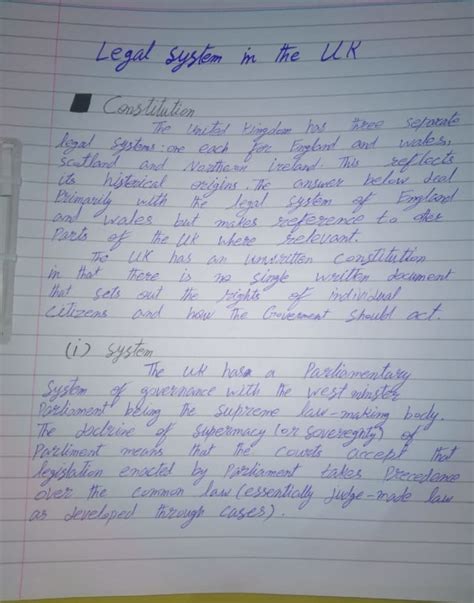 Legal system in the UK
Constitution
The United Kingdom has three separate
legal systems: one each for England and wales,
scotland and Northern ireland. This reflects
its historical origins. The answer below deal
Primarily with the legal system of England
and wales but makes reference to other
Parts of the UK where relevant.
The UK has an unwritten constitution
in that there is no single written document
that sets out the rights of individual
citizens and how The Goverment should act.
(i) system
The UK has a Parliamentary
System of governance with the westminister
Parliament being the supreme law-making body.
The doctrine of supermacy (or sovereghty) of
Parliment means that the courts accept that
legislation enacted by Parliament takes Precedence
over the common law (essentially Judge-made law
as developed through cases).